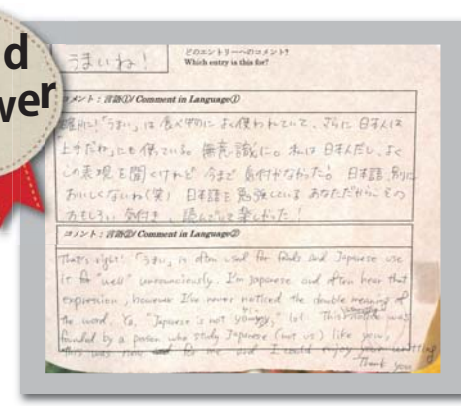 d
wer
うまいね!
どのエントリーへのコメント?
Which entry is this for?
コメント:言語①/ Comment in Language①
確かに!「うまい」は食べ物によく使われていて、さらに日本人は
上手だね」にも使っている。無意識に。私は日本人だし、よく
この表現を聞くけれど今まで気付かなかった。日本語、別に
おいしくないね(笑) 日本語を勉強しているあなただからこその
おもしろい気付き、読んでいて楽しかった!
コメント:言語②/ Comment in Language②
That's right! 「うまい」 is often used for foods and Japanese use
it for "well" unconsciously. I'm japanese and often hear that
expression, however I've never noticed the double meaning of
the word. Yo, "Japanese is not yummy," lol. This was
founded by a person who study Japanese (not us) like you,
this was new for me and I could enjoy your writting
Thank you